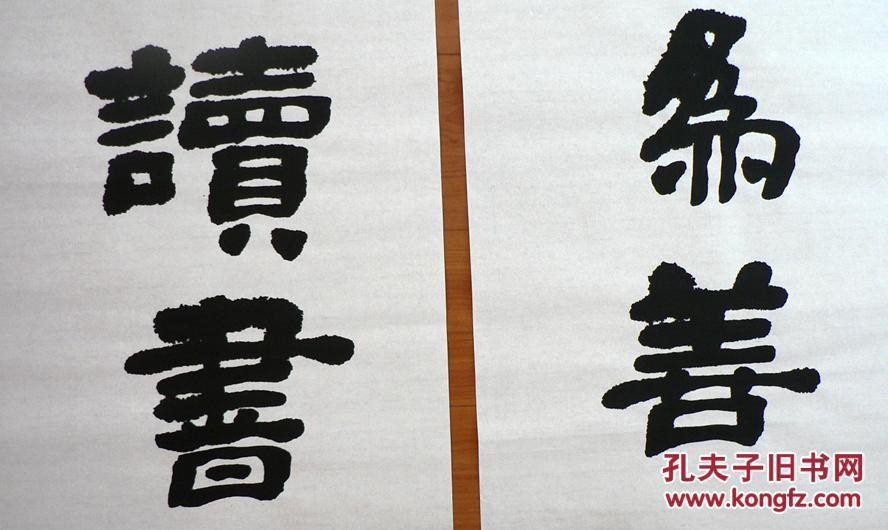 為善
讀書
孔夫子旧书网
www.kongfz.com